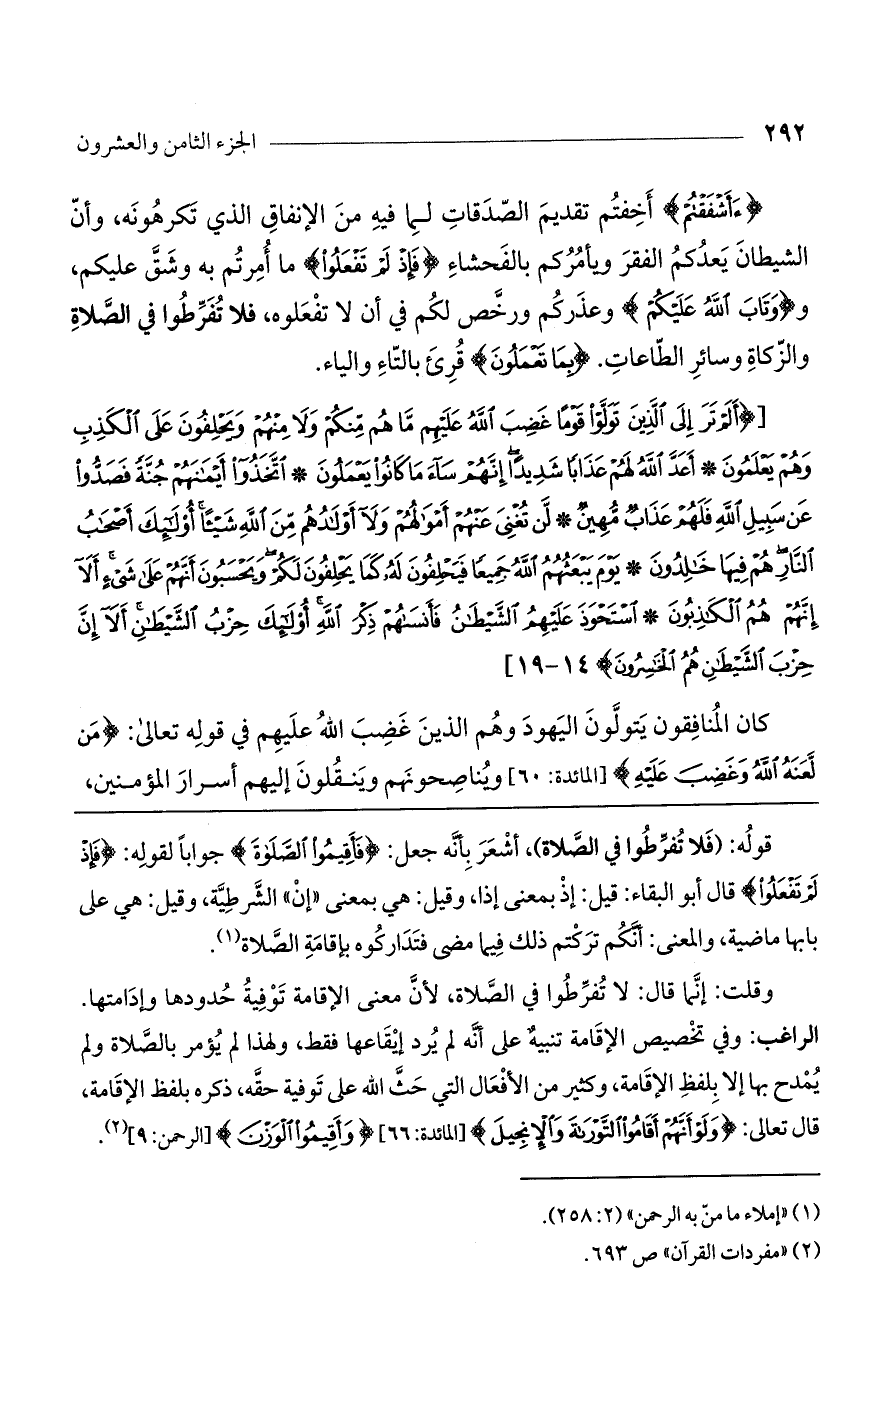 ٢٩٢ الجزء الثامن والعشرون
﴿ءَأَشْفَقْتُمْ﴾ أَخِفتُم تقديمَ الصّدَقاتِ لـما فيهِ منَ الإنفاقِ الذي تَكرهُونَه، وأنّ
الشيطانَ يَعدُكمُ الفقرَ ويأمُرُكم بالفَحشاءِ ﴿فَإِذْ لَمْ تَفْعَلُوا۟﴾ ما أُمِرتُم به وشَقَّ عليكم،
و﴿وَتَابَ ٱللَّهُ عَلَيْكُمْ﴾ وعذَركُم ورخَّص لكُم في أن لا تفْعَلوه، فلا تُفَرِّطُوا في الصَّلاةِ
والزّكاةِ وسائرِ الطّاعاتِ. ﴿بِمَا تَعْمَلُونَ﴾ قُرِئَ بالتّاءِ والياء.
[﴿أَلَمْ تَرَ إِلَى ٱلَّذِينَ تَوَلَّوْا۟ قَوْمًا غَضِبَ ٱللَّهُ عَلَيْهِم مَّا هُم مِّنكُمْ وَلَا مِنْهُمْ وَيَحْلِفُونَ عَلَى ٱلْكَذِبِ
وَهُمْ يَعْلَمُونَ * أَعَدَّ ٱللَّهُ لَهُمْ عَذَابًا شَدِيدًا ۖ إِنَّهُمْ سَآءَ مَا كَانُوا۟ يَعْمَلُونَ * ٱتَّخَذُوٓا۟ أَيْمَٰنَهُمْ جُنَّةً فَصَدُّوا۟
عَن سَبِيلِ ٱللَّهِ فَلَهُمْ عَذَابٌ مُّهِينٌ * لَّن تُغْنِىَ عَنْهُمْ أَمْوَٰلُهُمْ وَلَآ أَوْلَٰدُهُم مِّنَ ٱللَّهِ شَيْـًٔا ۚ أُو۟لَٰٓئِكَ أَصْحَٰبُ
ٱلنَّارِ ۖ هُمْ فِيهَا خَٰلِدُونَ * يَوْمَ يَبْعَثُهُمُ ٱللَّهُ جَمِيعًا فَيَحْلِفُونَ لَهُۥ كَمَا يَحْلِفُونَ لَكُمْ ۖ وَيَحْسَبُونَ أَنَّهُمْ عَلَىٰ شَىْءٍ ۚ أَلَآ
إِنَّهُمْ هُمُ ٱلْكَٰذِبُونَ * ٱسْتَحْوَذَ عَلَيْهِمُ ٱلشَّيْطَٰنُ فَأَنسَىٰهُمْ ذِكْرَ ٱللَّهِ ۚ أُو۟لَٰٓئِكَ حِزْبُ ٱلشَّيْطَٰنِ ۚ أَلَآ إِنَّ
حِزْبَ ٱلشَّيْطَٰنِ هُمُ ٱلْخَٰسِرُونَ﴾ ١٤-١٩]
كان المُنافِقون يَتولَّونَ اليَهودَ وهُم الذينَ غَضِبَ اللهُ علَيهِم في قولِه تعالىٰ: ﴿مَن
لَّعَنَهُ ٱللَّهُ وَغَضِبَ عَلَيْهِ﴾ [المائدة: ٦٠] ويُناصِحونَهم ويَنـقُلونَ إليهم أسـرارَ المؤمـنين،
قولُه: (فَلا تُفرِّطُوا في الصَّلاة)، أشْعَرَ بِأنَّه جعل: ﴿فَأَقِيمُوا۟ ٱلصَّلَوٰةَ﴾ جواباً لقولِه: ﴿فَإِذْ
لَمْ تَفْعَلُوا۟﴾ قال أبو البقاء: قيل: إذْ بمعنى إذا، وقيل: هي بمعنى «إنْ» الشَّرطِيَّة، وقيل: هي على
بابها ماضية، والمعنى: أنَّكُم تركْتم ذلك فِيما مضى فتَدَاركُوه بإقامَةِ الصَّلاة(١).
وقلت: إنَّما قال: لا تُفرِّطُوا في الصَّلاة، لأنَّ معنى الإقامة تَوْفِيةُ حُدودها وإدَامتها.
الراغب: وفي تَخْصيص الإقَامة تنبيهٌ على أنَّه لم يُرد إيْقَاعها فقط، ولهذا لم يُؤمر بالصَّلاة ولم
يُمْدح بها إلا بِلفظِ الإقَامة، وكثير من الأفْعَال التي حَثَّ الله على تَوفية حقَّه، ذكره بلفظ الإقَامة،
قال تعالى: ﴿وَلَوْ أَنَّهُمْ أَقَامُوا۟ ٱلتَّوْرَىٰةَ وَٱلْإِنجِيلَ﴾ [المائدة: ٦٦] ﴿وَأَقِيمُوا۟ ٱلْوَزْنَ﴾ [الرحمن: ٩](٢).
(١) «إملاء ما منّ به الرحمن» (٢: ٢٥٨).
(٢) «مفردات القرآن» ص ٦٩٣.